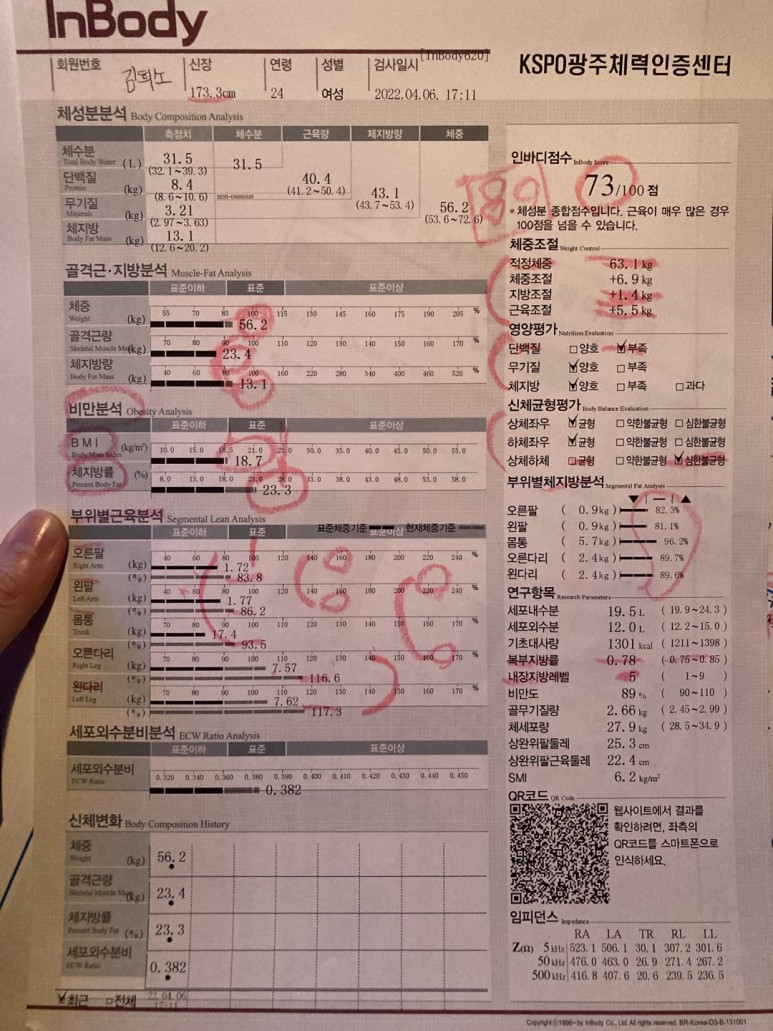 InBody
[InBody620]
회원번호 신장 연령 성별 검사일시
173.3cm 24 여성 2022.04.06. 17:11
KSPO광주체력인증센터
체성분분석 Body Composition Analysis
측정치 체수분 근육량 제지방량 체중
체수분 Total Body Water (L) 31.5 (32.1~39.3) 31.5
단백질 Protein (kg) 8.4 (8.6~10.6) 40.4 (41.2~50.4)
무기질 Minerals (kg) 3.21 (2.97~3.63) non-osseous 43.1 (43.7~53.4)
체지방 Body Fat Mass (kg) 13.1 (12.6~20.2) 56.2 (53.6~72.6)
골격근·지방분석 Muscle-Fat Analysis
표준이하 표준 표준이상
체중 Weight (kg) 55 70 85 100 115 130 145 160 175 190 205 %
56.2
골격근량 Skeletal Muscle Mass (kg) 70 80 90 100 110 120 130 140 150 160 170 %
23.4
체지방량 Body Fat Mass (kg) 40 60 80 100 160 220 280 340 400 460 520 %
13.1
비만분석 Obesity Analysis
표준이하 표준 표준이상
BMI Body Mass Index (kg/m²) 10.0 15.0 18.5 21.0 25.0 30.0 35.0 40.0 45.0 50.0 55.0
18.7
체지방률 Percent Body Fat (%) 8.0 13.0 18.0 23.0 28.0 33.0 38.0 43.0 48.0 53.0 58.0
23.3
부위별근육분석 Segmental Lean Analysis 표준체중기준 현재체중기준
표준이하 표준 표준이상
오른팔 Right Arm (kg) (%) 40 60 80 100 120 140 160 180 200 220 240 %
1.72
83.8
왼팔 Left Arm (kg) (%) 40 60 80 100 120 140 160 180 200 220 240 %
1.77
86.2
몸통 Trunk (kg) (%) 70 80 90 100 110 120 130 140 150 160 170 %
17.4
93.5
오른다리 Right Leg (kg) (%) 70 80 90 100 110 120 130 140 150 160 170 %
7.57
116.6
왼다리 Left Leg (kg) (%) 70 80 90 100 110 120 130 140 150 160 170 %
7.62
117.3
세포외수분비분석 ECW Ratio Analysis
표준이하 표준 표준이상
세포외수분비 ECW Ratio 0.320 0.340 0.360 0.380 0.390 0.400 0.410 0.420 0.430 0.440 0.450
0.382
신체변화 Body Composition History
체중 Weight (kg) 56.2
골격근량 Skeletal Muscle Mass (kg) 23.4
체지방률 Percent Body Fat (%) 23.3
세포외수분비 ECW Ratio 0.382
최근 전체 22.04.06 17:11
인바디점수 InBody Score
73/100 점
* 체성분 종합점수입니다. 근육이 매우 많은 경우
100점을 넘을 수 있습니다.
체중조절 Weight Control
적정체중 63.1 kg
체중조절 +6.9 kg
지방조절 +1.4 kg
근육조절 +5.5 kg
영양평가 Nutrition Evaluation
단백질 양호 부족
무기질 양호 부족
체지방 양호 부족 과다
신체균형평가 Body Balance Evaluation
상체좌우 균형 약한불균형 심한불균형
하체좌우 균형 약한불균형 심한불균형
상체하체 균형 약한불균형 심한불균형
부위별체지방분석 Segmental Fat Analysis
오른팔 ( 0.9kg ) 82.3%
왼팔 ( 0.9kg ) 81.1%
몸통 ( 5.7kg ) 96.2%
오른다리 ( 2.4kg ) 89.7%
왼다리 ( 2.4kg ) 89.6%
연구항목 Research Parameters
세포내수분 19.5 L ( 19.9~24.3 )
세포외수분 12.0 L ( 12.2~15.0 )
기초대사량 1301 kcal ( 1211~1398 )
복부지방률 0.78 ( 0.75~0.85 )
내장지방레벨 5 ( 1~9 )
비만도 89 % ( 90~110 )
골무기질량 2.66 kg ( 2.45~2.99 )
체세포량 27.9 kg ( 28.5~34.9 )
상완위팔둘레 25.3 cm
상완위팔근육둘레 22.4 cm
SMI 6.2 kg/m²
QR코드 QR Code
웹사이트에서 결과를
확인하려면, 좌측의
QR코드를 스마트폰으로
인식하세요.
임피던스 Impedance
RA LA TR RL LL
Z(Ω) 5 kHz 523.1 506.1 30.1 307.2 301.6
50 kHz 476.0 463.0 26.9 271.4 267.2
500 kHz 416.8 407.6 20.6 239.5 236.5
Copyright©1996~ by InBody Co., Ltd. All rights reserved. BR-Korea-D3-B-131001